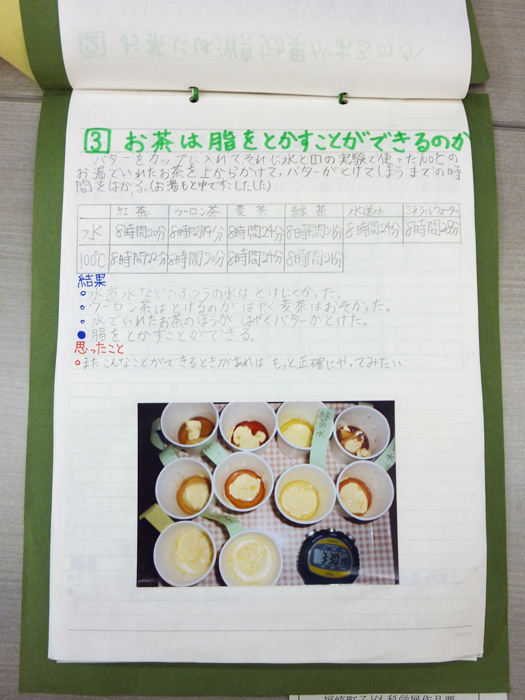 3 お茶は脂をとかすことができるのか
バターをカップに入れてそれに水と四の実験で使った100℃の
お湯でいれたお茶を上からかけて、バターがとけてしまうまでの時
間をはかる。(お湯もとちゅうでたしました)
紅茶 ウーロン茶 麦茶 緑茶 水道水 ミネラルウォーター
水 8時間20分 8時間19分 8時間24分 8時間21分 8時間24分 8時間28分
100℃ 8時間22分 8時間20分 8時間24分 8時間21分
結果
水道水などのふつうの水はとけにくかった。
ウーロン茶はとけるのがはやく麦茶はおそかった。
水でいれたお茶のほうがはやくバターがとけた。
脂をとかすことができる。
思ったこと
またこんなことができるときがあればもっと正確にやってみたい
緑茶
水
3:30